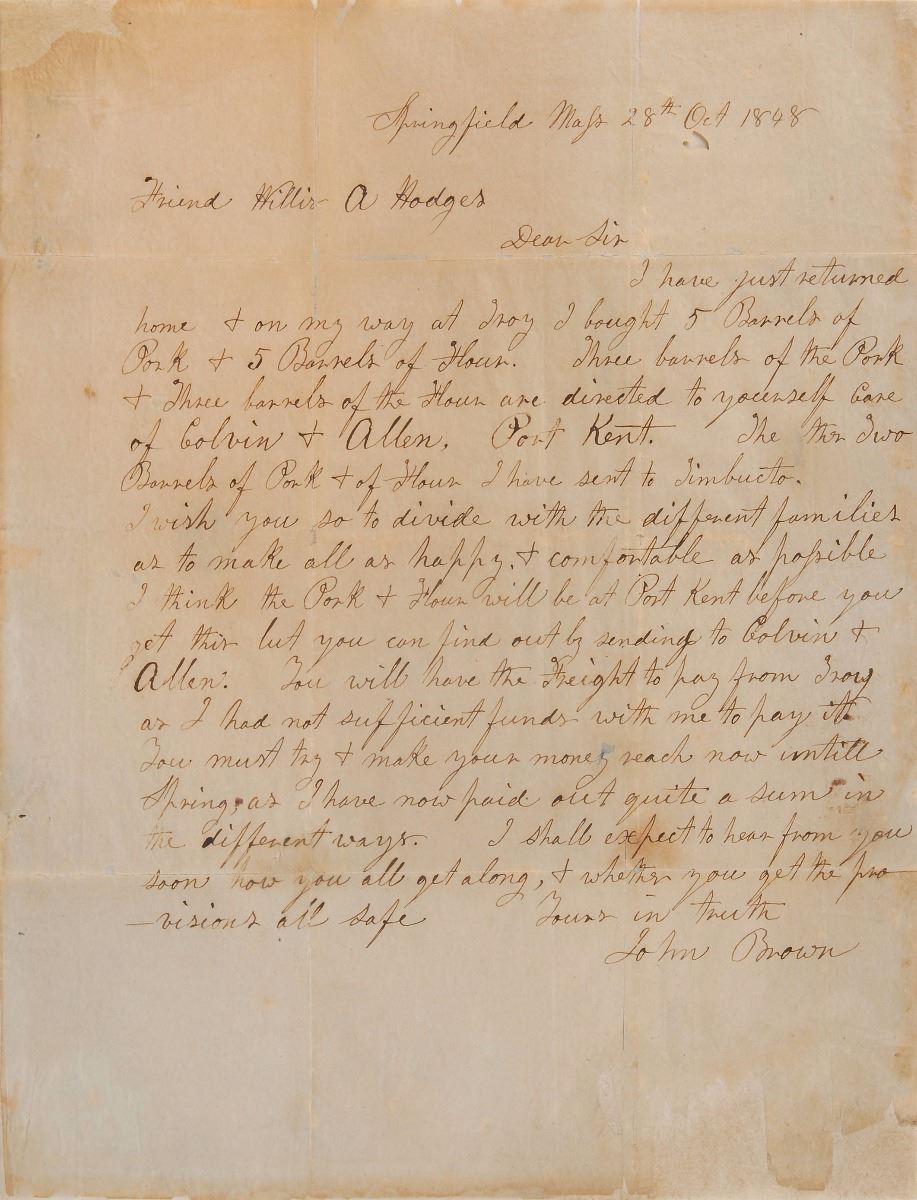 Springfield Mass 28th Oct 1848
Friend Willis A Hodges
Dear Sir
I have just returned
home & on my way at Troy I bought 5 Barrels of
Pork & 5 Barrels of Flour. Three barrels of the Pork
& Three barrels of the Flour are directed to yourself Care
of Colvin & Allen, Port Kent. The Two
Barrels of Pork & of Flour I have sent to Timbucto.
I wish you so to divide with the different families
as to make all as happy, & comfortable as possible
I think the Pork & Flour will be at Port Kent before you
get this but you can find out by sending to Colvin &
Allen. You will have the Freight to pay from Troy
as I had not sufficient funds with me to pay it
You must try & make your money reach now untill
Spring, as I have now paid out quite a sum in
the different ways. I shall expect to hear from you
soon how you all get along, & whether you get the pro
-visions all safe Yours in truth
John Brown